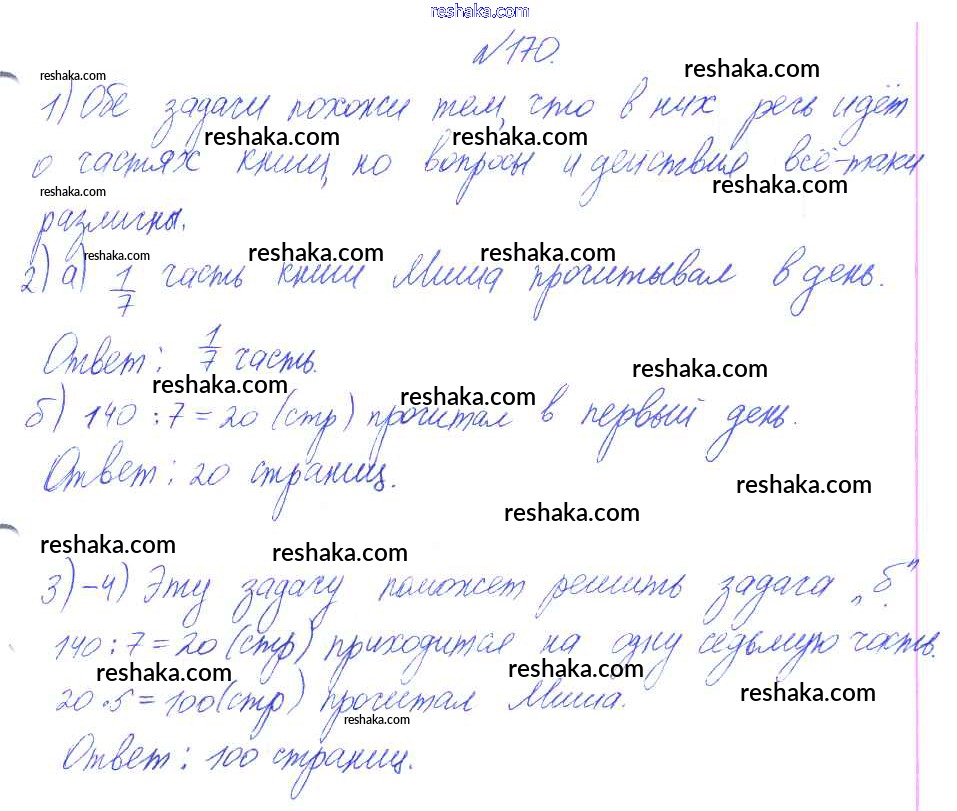 reshaka.com
№170.
reshaka.com reshaka.com
1) Обе задачи похожи тем, что в них речь идёт
reshaka.com reshaka.com
о частях книги, но вопросы и действия всё-таки
reshaka.com reshaka.com
различны.
reshaka.com reshaka.com reshaka.com
2) а) 1/7 часть книги Миша прочитывал в день.
Ответ: 1/7 часть.
reshaka.com reshaka.com reshaka.com
б) 140 : 7 = 20 (стр) прочитал в первый день.
Ответ: 20 страниц.
reshaka.com reshaka.com
reshaka.com reshaka.com
3)-4) Эту задачу поможет решить задача „б".
140 : 7 = 20 (стр) приходится на одну седьмую часть.
reshaka.com reshaka.com reshaka.com
20 · 5 = 100 (стр) прочитал Миша.
reshaka.com
Ответ: 100 страниц.